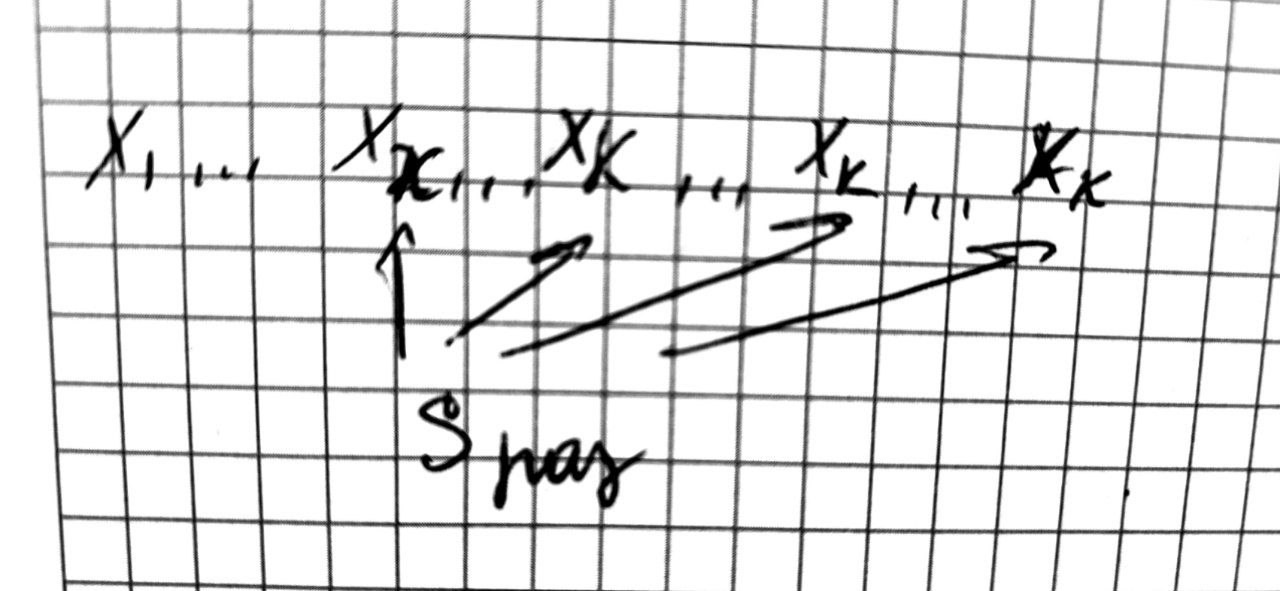 X₁,... Xₖ,... Xₖ,... Xₖ,... Xₖ
S раз